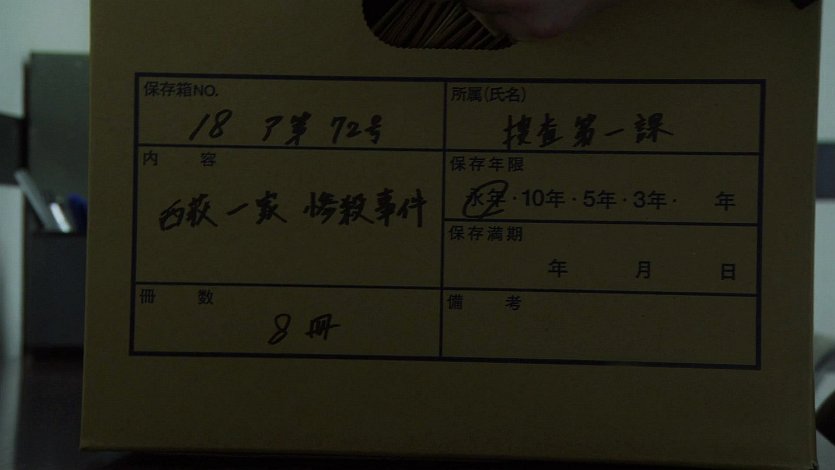 保存箱NO.
18 ア第 72号
所属(氏名)
捜査第一課
内 容
西荻一家 惨殺事件
保存年限
永年・10年・5年・3年・ 年
保存満期
年 月 日
冊 数
8冊
備 考